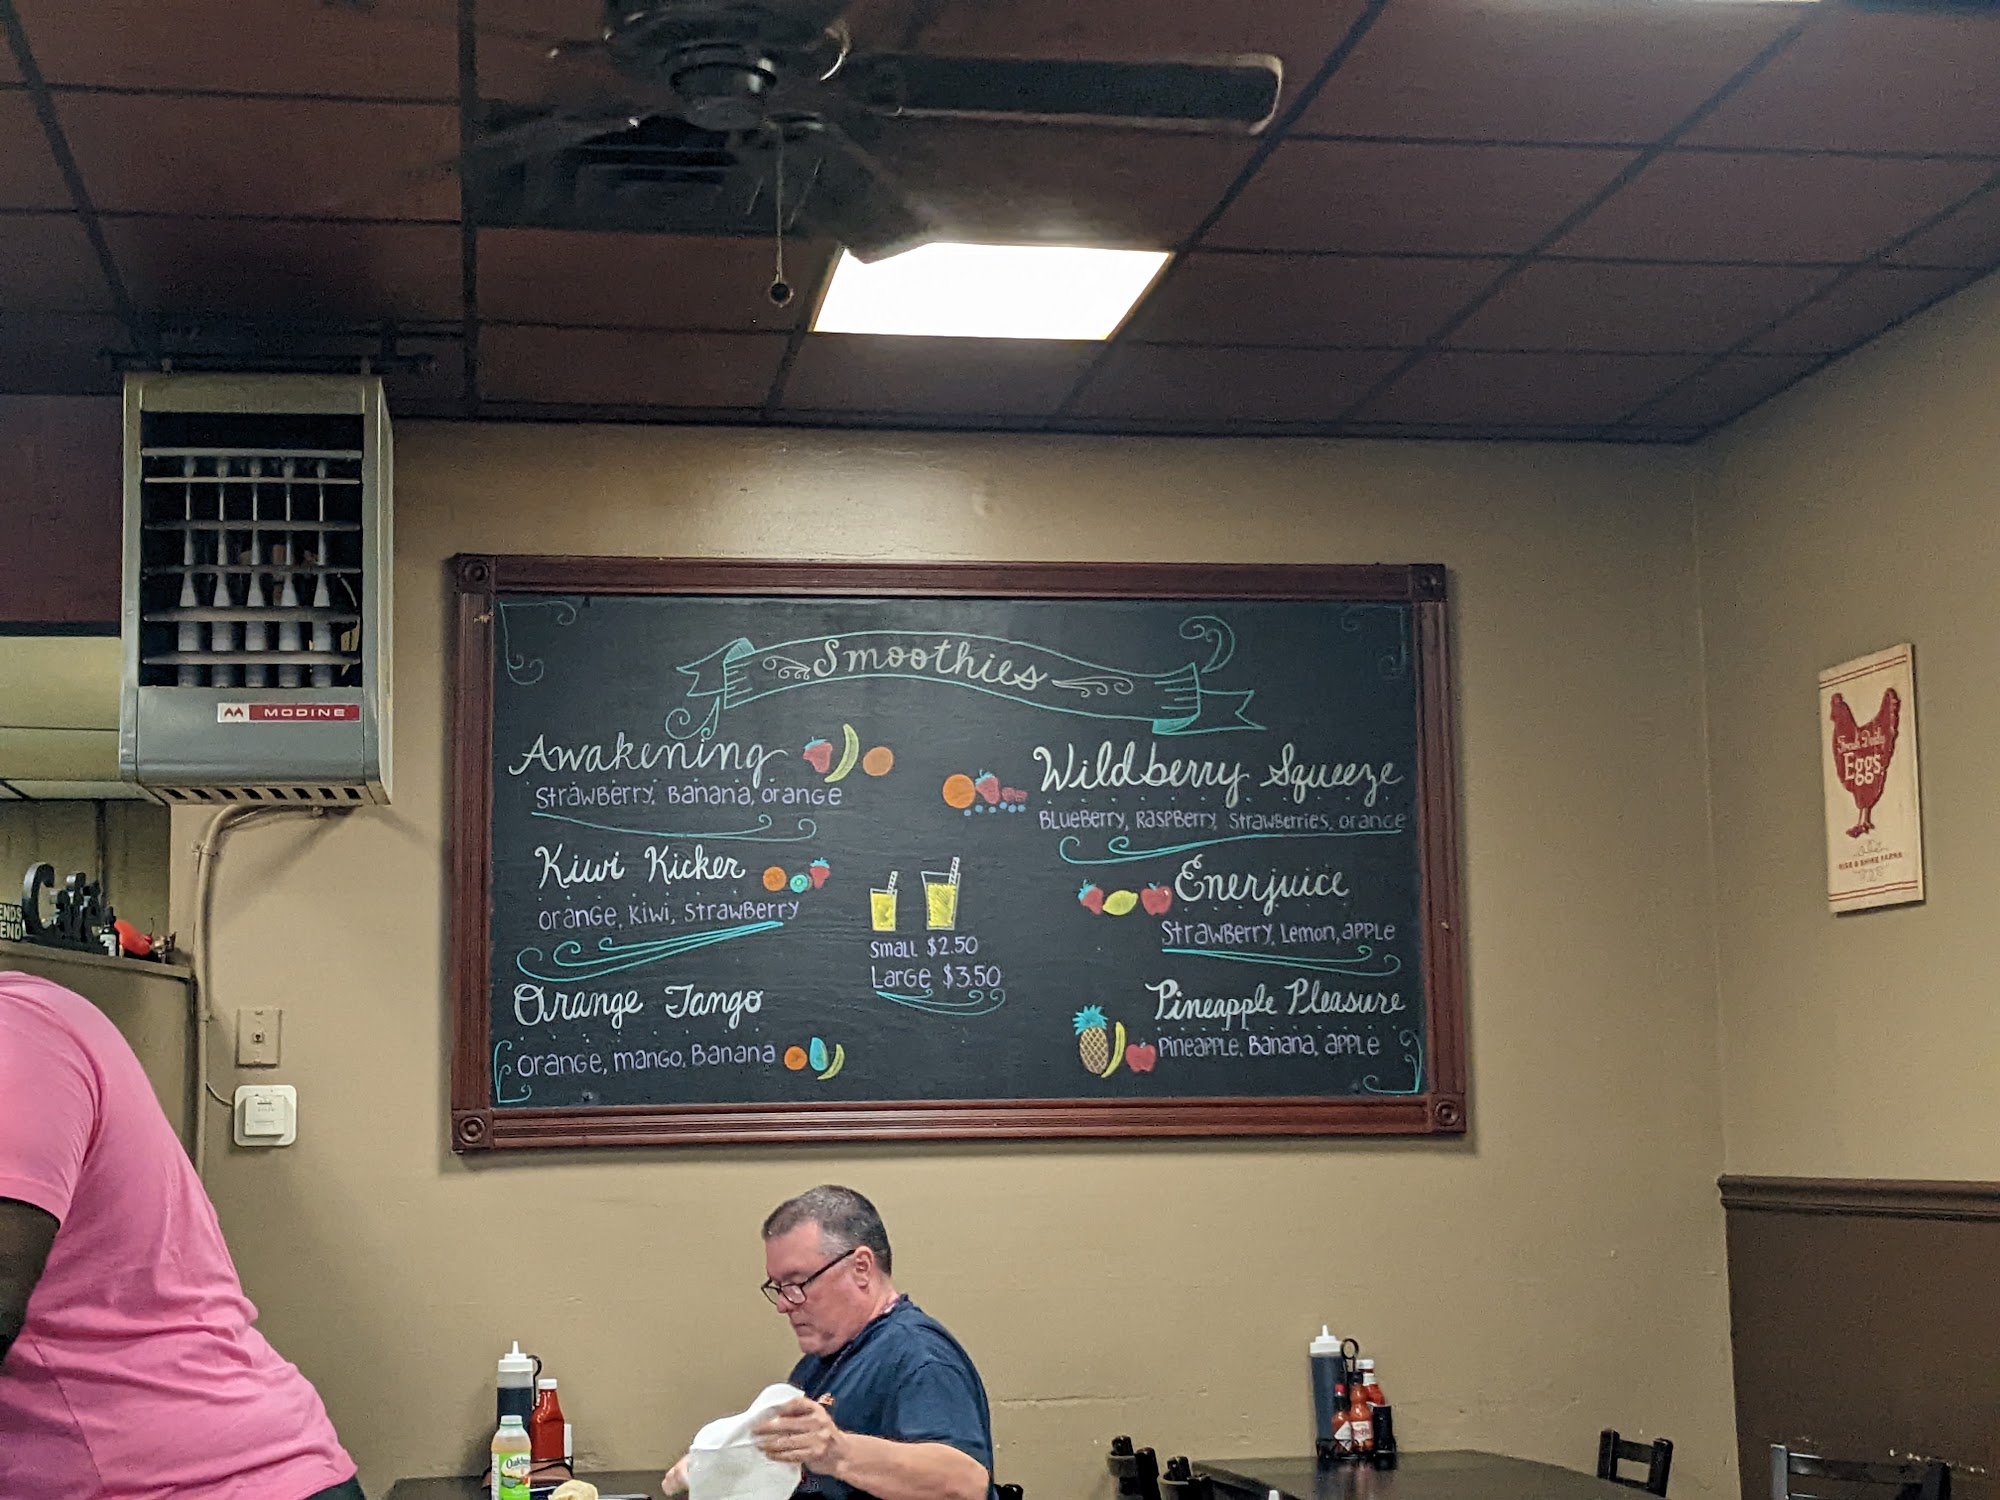 Smoothies
Awakening
Strawberry, Banana, orange
Kiwi Kicker
orange, kiwi, strawberry
Orange Tango
orange, mango, Banana
small $2.50
Large $3.50
Wildberry Squeeze
Blueberry, Raspberry, strawberries, orange
Enerjuice
Strawberry, Lemon, apple
Pineapple Pleasure
pineapple, Banana, apple
MODINE
Fresh Daily
Eggs
RISE & SHINE FARMS
ENDS
END
Oakhurst